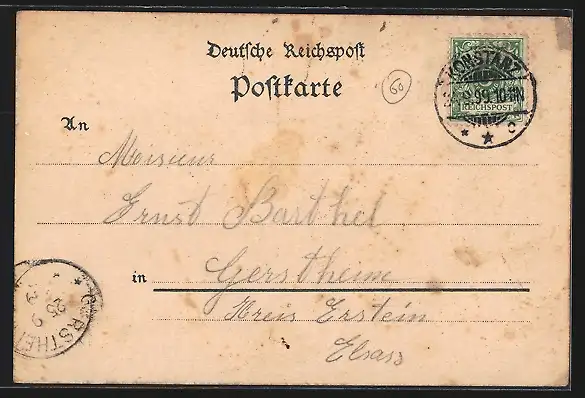 Deutsche Reichspost
Postkarte
60
KONSTANZ
9.99.10-11N
REICHSPOST
* * c
An
Monsieur
Ernst Barthel
in Gerstheim
Kreis Erstein
Elsass
GERSTHEI
25 9